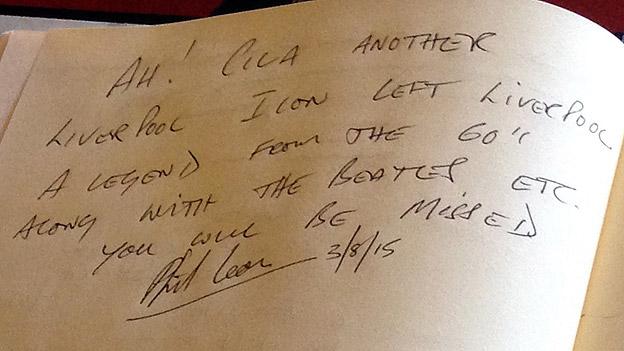 AH! CILLA ANOTHER
LIVERPOOL ICON LEFT LIVERPOOL
A LEGEND FROM THE 60"
ALONG WITH THE BEATLES ETC.
YOU WILL BE MISSED
Phil 3/8/15